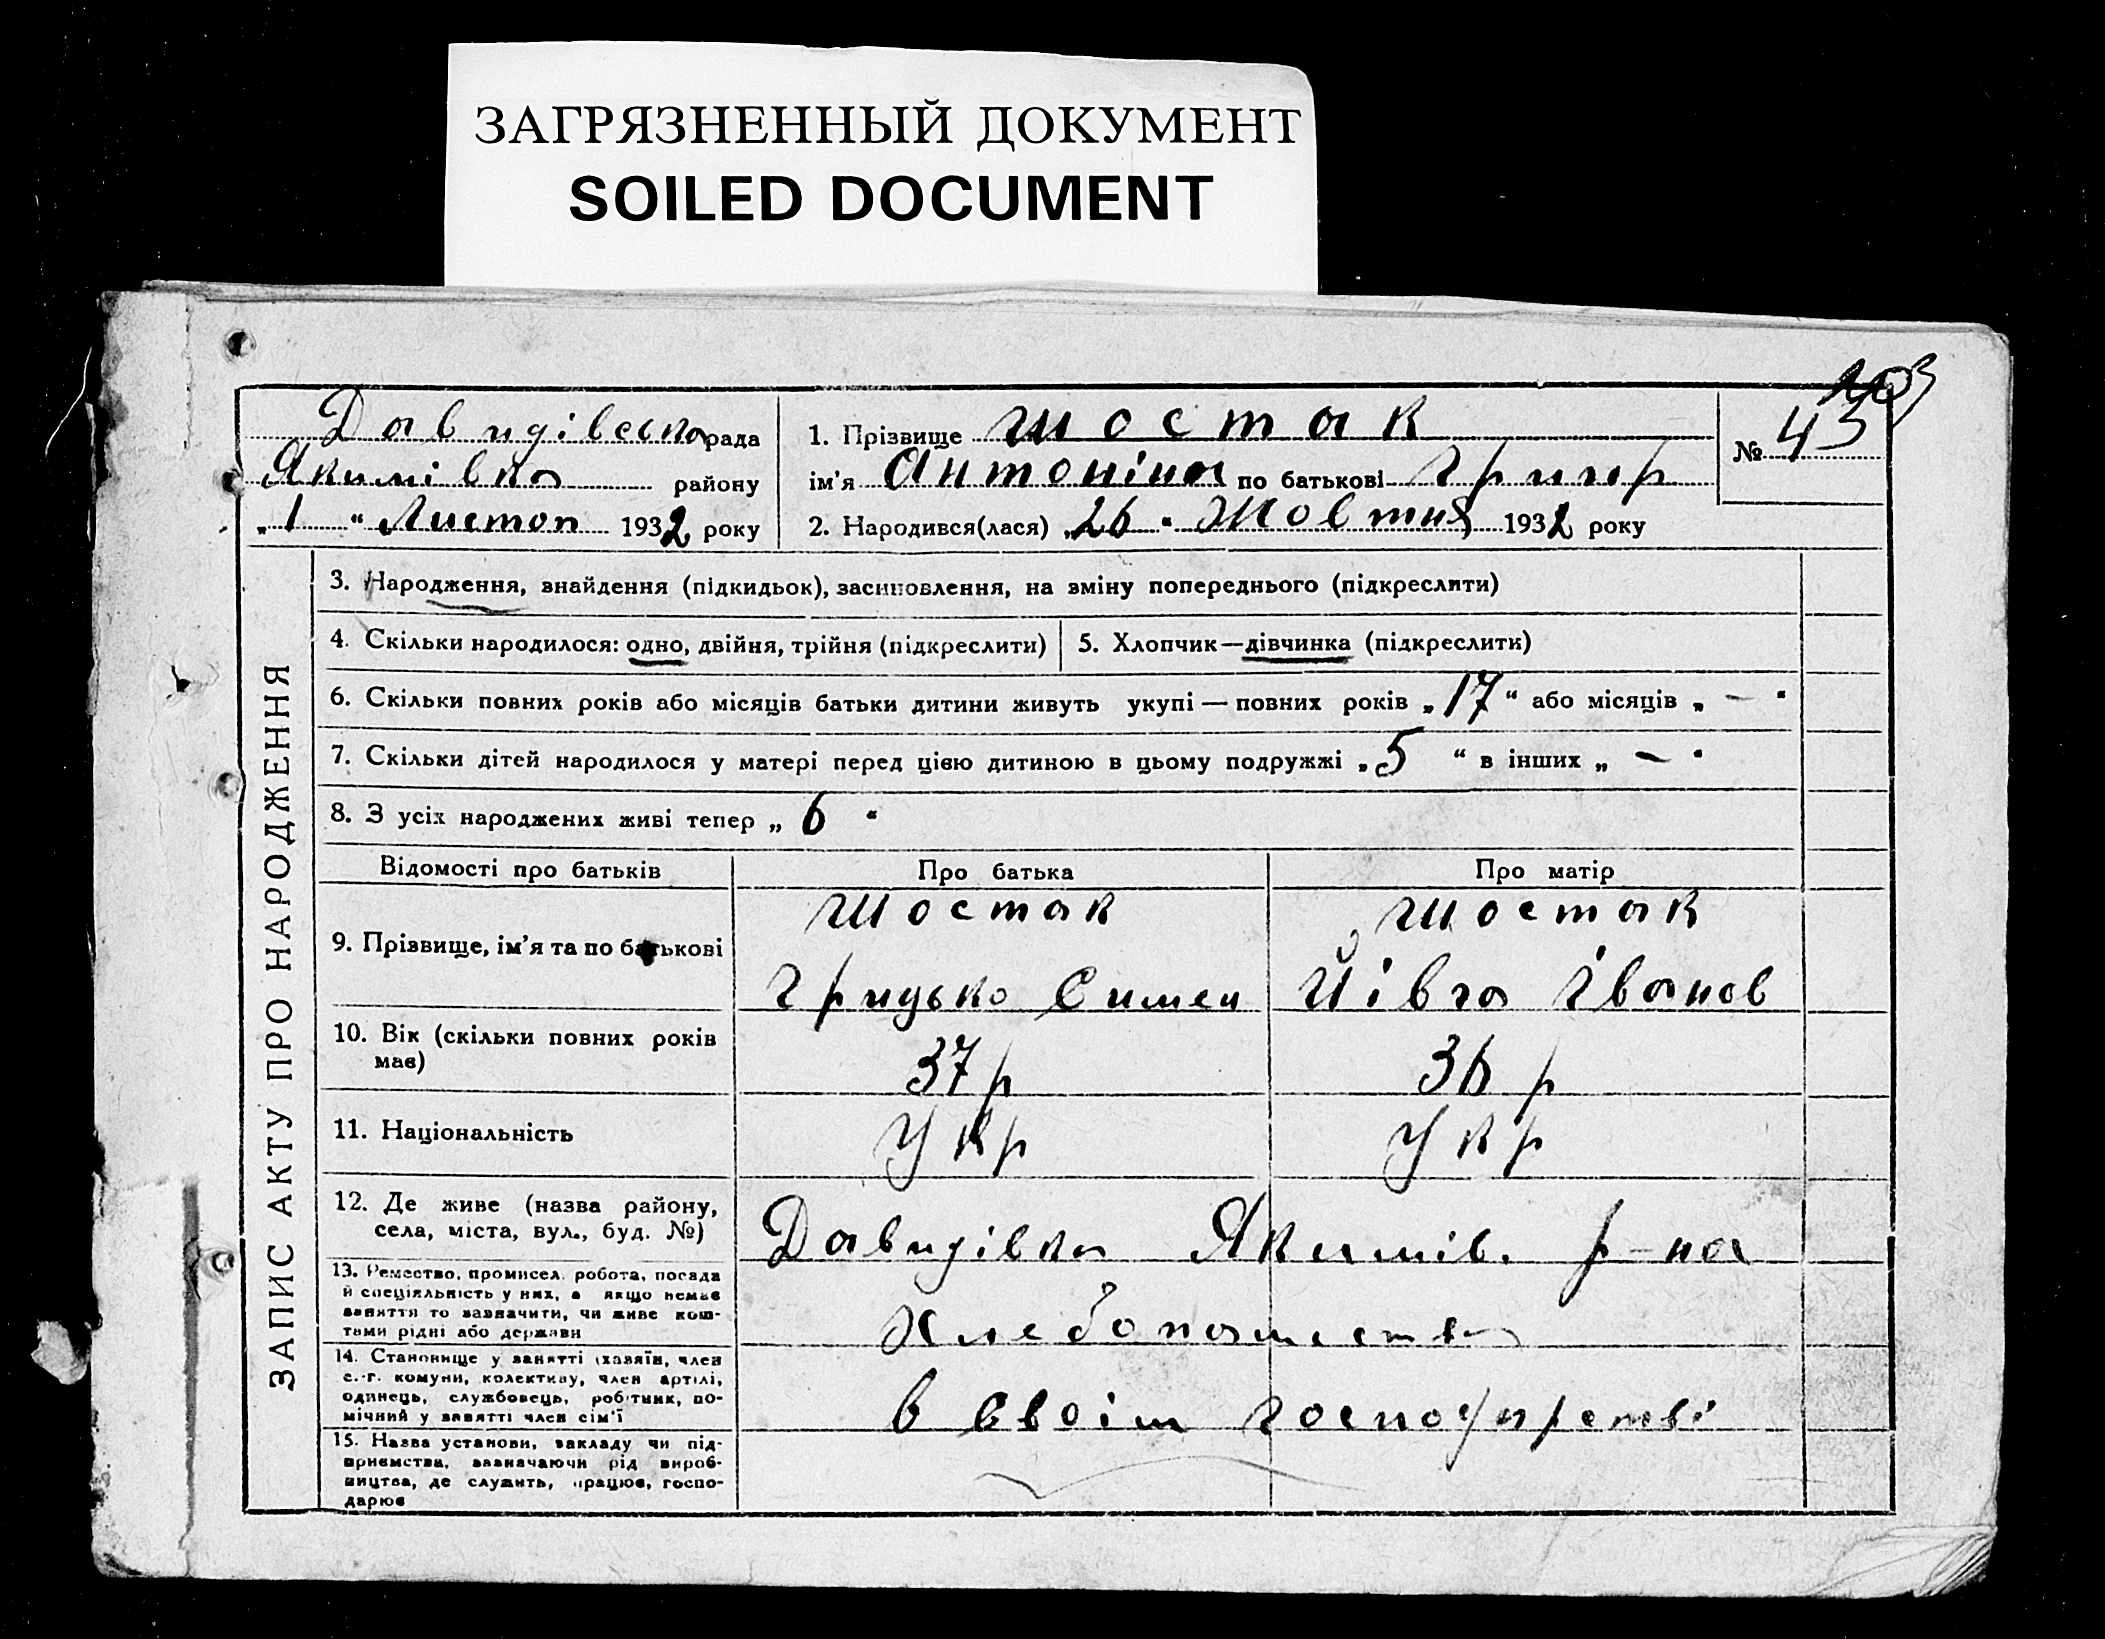 ЗАГРЯЗНЕННЫЙ ДОКУМЕНТ
SOILED DOCUMENT
103
Давидівська рада
Якимівка району
„ 1 “ Листоп 1932 року
1. Прізвище Шостак
ім'я Антоніна по батькові Григор
2. Народився(лася) „26“ Жовтня 1932 року
№ 43
ЗАПИС АКТУ ПРО НАРОДЖЕННЯ
3. Народження, знайдення (підкидьок), засиновлення, на зміну попереднього (підкреслити)
4. Скільки народилося: одно, двійня, трійня (підкреслити)
5. Хлопчик—дівчинка (підкреслити)
6. Скільки повних років або місяців батьки дитини живуть укупі — повних років „17“ або місяців „ — “
7. Скільки дітей народилося у матері перед цією дитиною в цьому подружжі „5 “ в інших „ — “
8. З усіх народжених живі тепер „ 6 “
Відомості про батьків
Про батька
Про матір
9. Прізвище, ім'я та по батькові
Шостак
Грицько Симен
Шостак
Йівга Іванов
10. Вік (скільки повних років
має)
37 р
36 р
11. Національність
Укр
Укр
12. Де живе (назва району,
села, міста, вул., буд. №)
Давидівка Якимів. р-на
13. Ремество, промисел, робота, посада
й спеціяльність у них, а якщо немає
заняття то зазначити, чи живе кош-
тами рідні або держави
Хлебопашество
14. Становище у занятті (хазяїн, член
с.-г. комуни, колективу, член артілі,
одинець, службовець, робітник, по-
мічний у занятті член сім'ї
в своім господарстві
15. Назва установи, закладу чи під-
приємства, зазначаючи рід вироб-
ництва, де служить, працює, госпо-
дарює